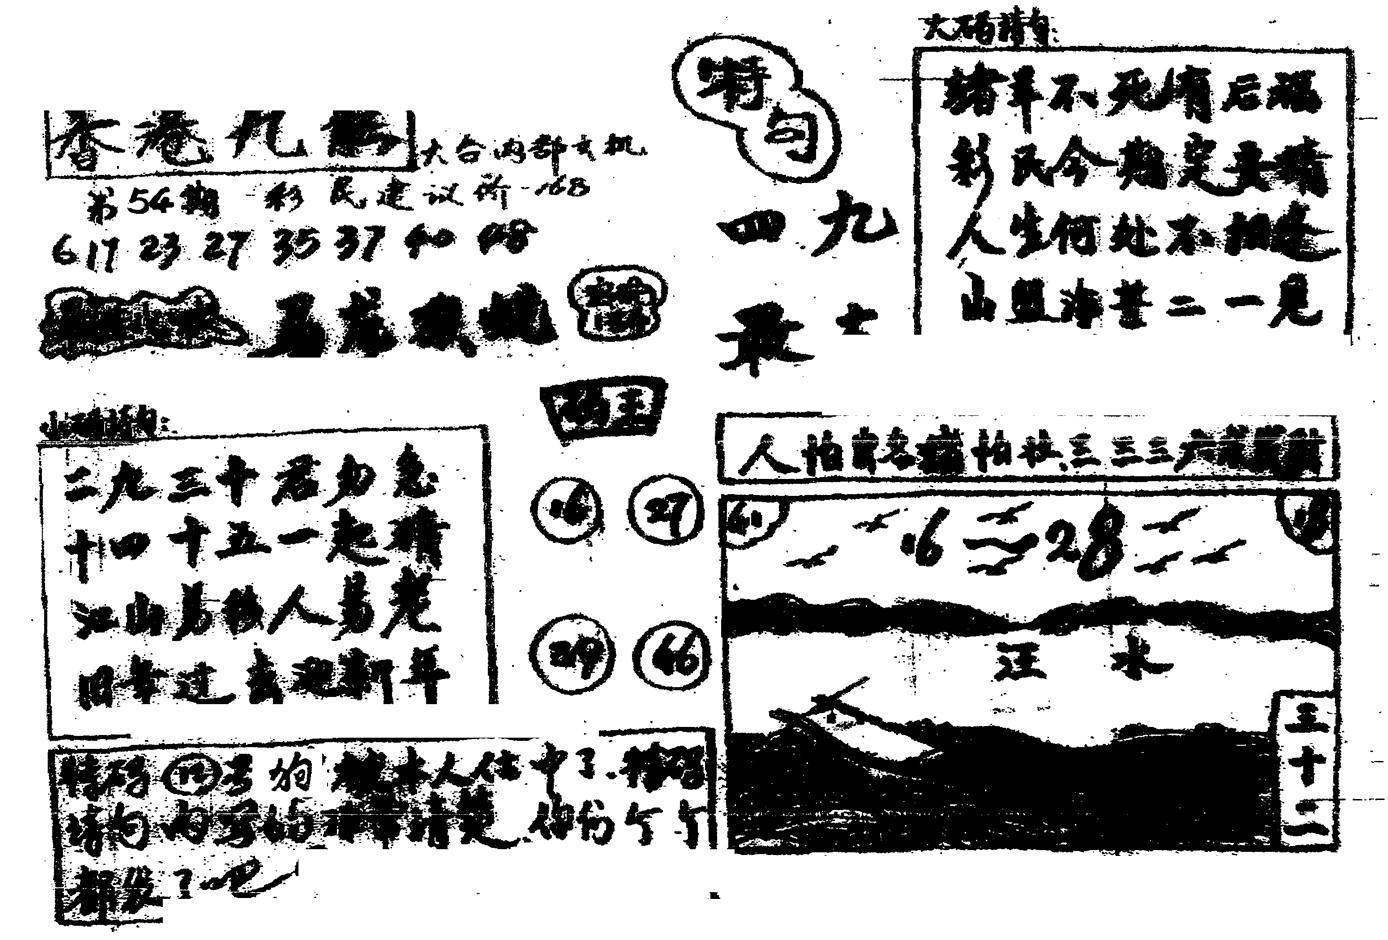 香港九龍
大台内部玄机
第54期 彩民建议价168
6 17 23 27 35 37 40 48
马龙猴蛇
特句
四九
最
大码诗句:
猪年不死有后福
彩民今期定要猜
人生何处不相逢
山盟海誓二一见
小码诗句:
二九三十君勿急
十四十五一起猜
江山易移人易老
旧年过去迎新年
码王
16 27
29 46
人怕出名猪怕壮三三三六
16 28
江水
三十二
特码 号狗 本人估中了.特码
诗句内写的非常清楚.你们个个
都发?吧